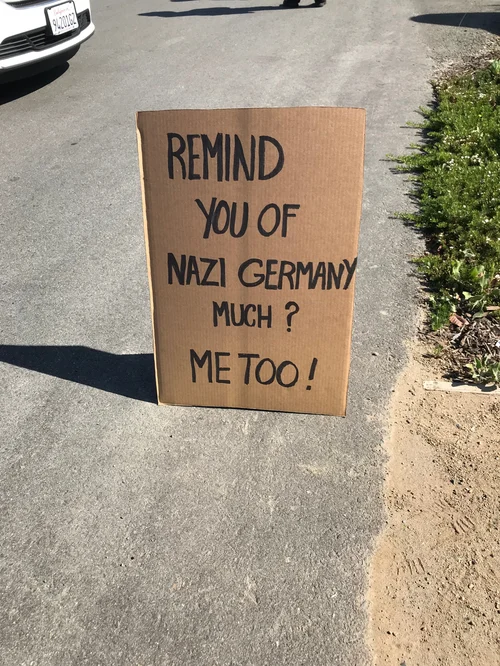 REMIND
YOU OF
NAZI GERMANY
MUCH ?
ME TOO!